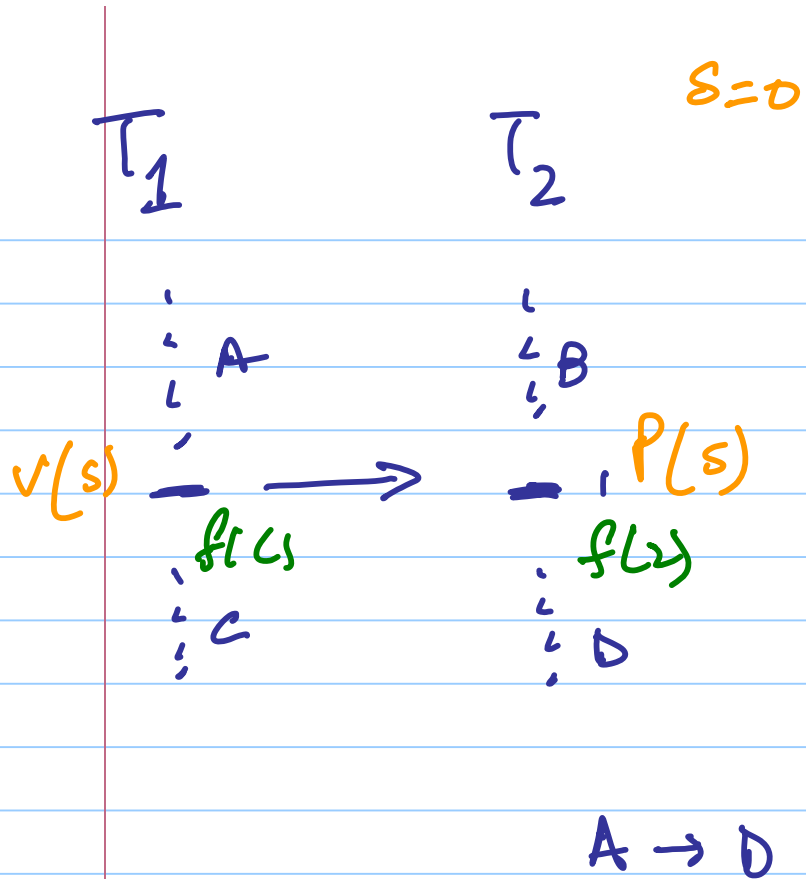 S=0
T1 T2
A B
V(s) → P(s)
f(1) f(2)
C D
A → D